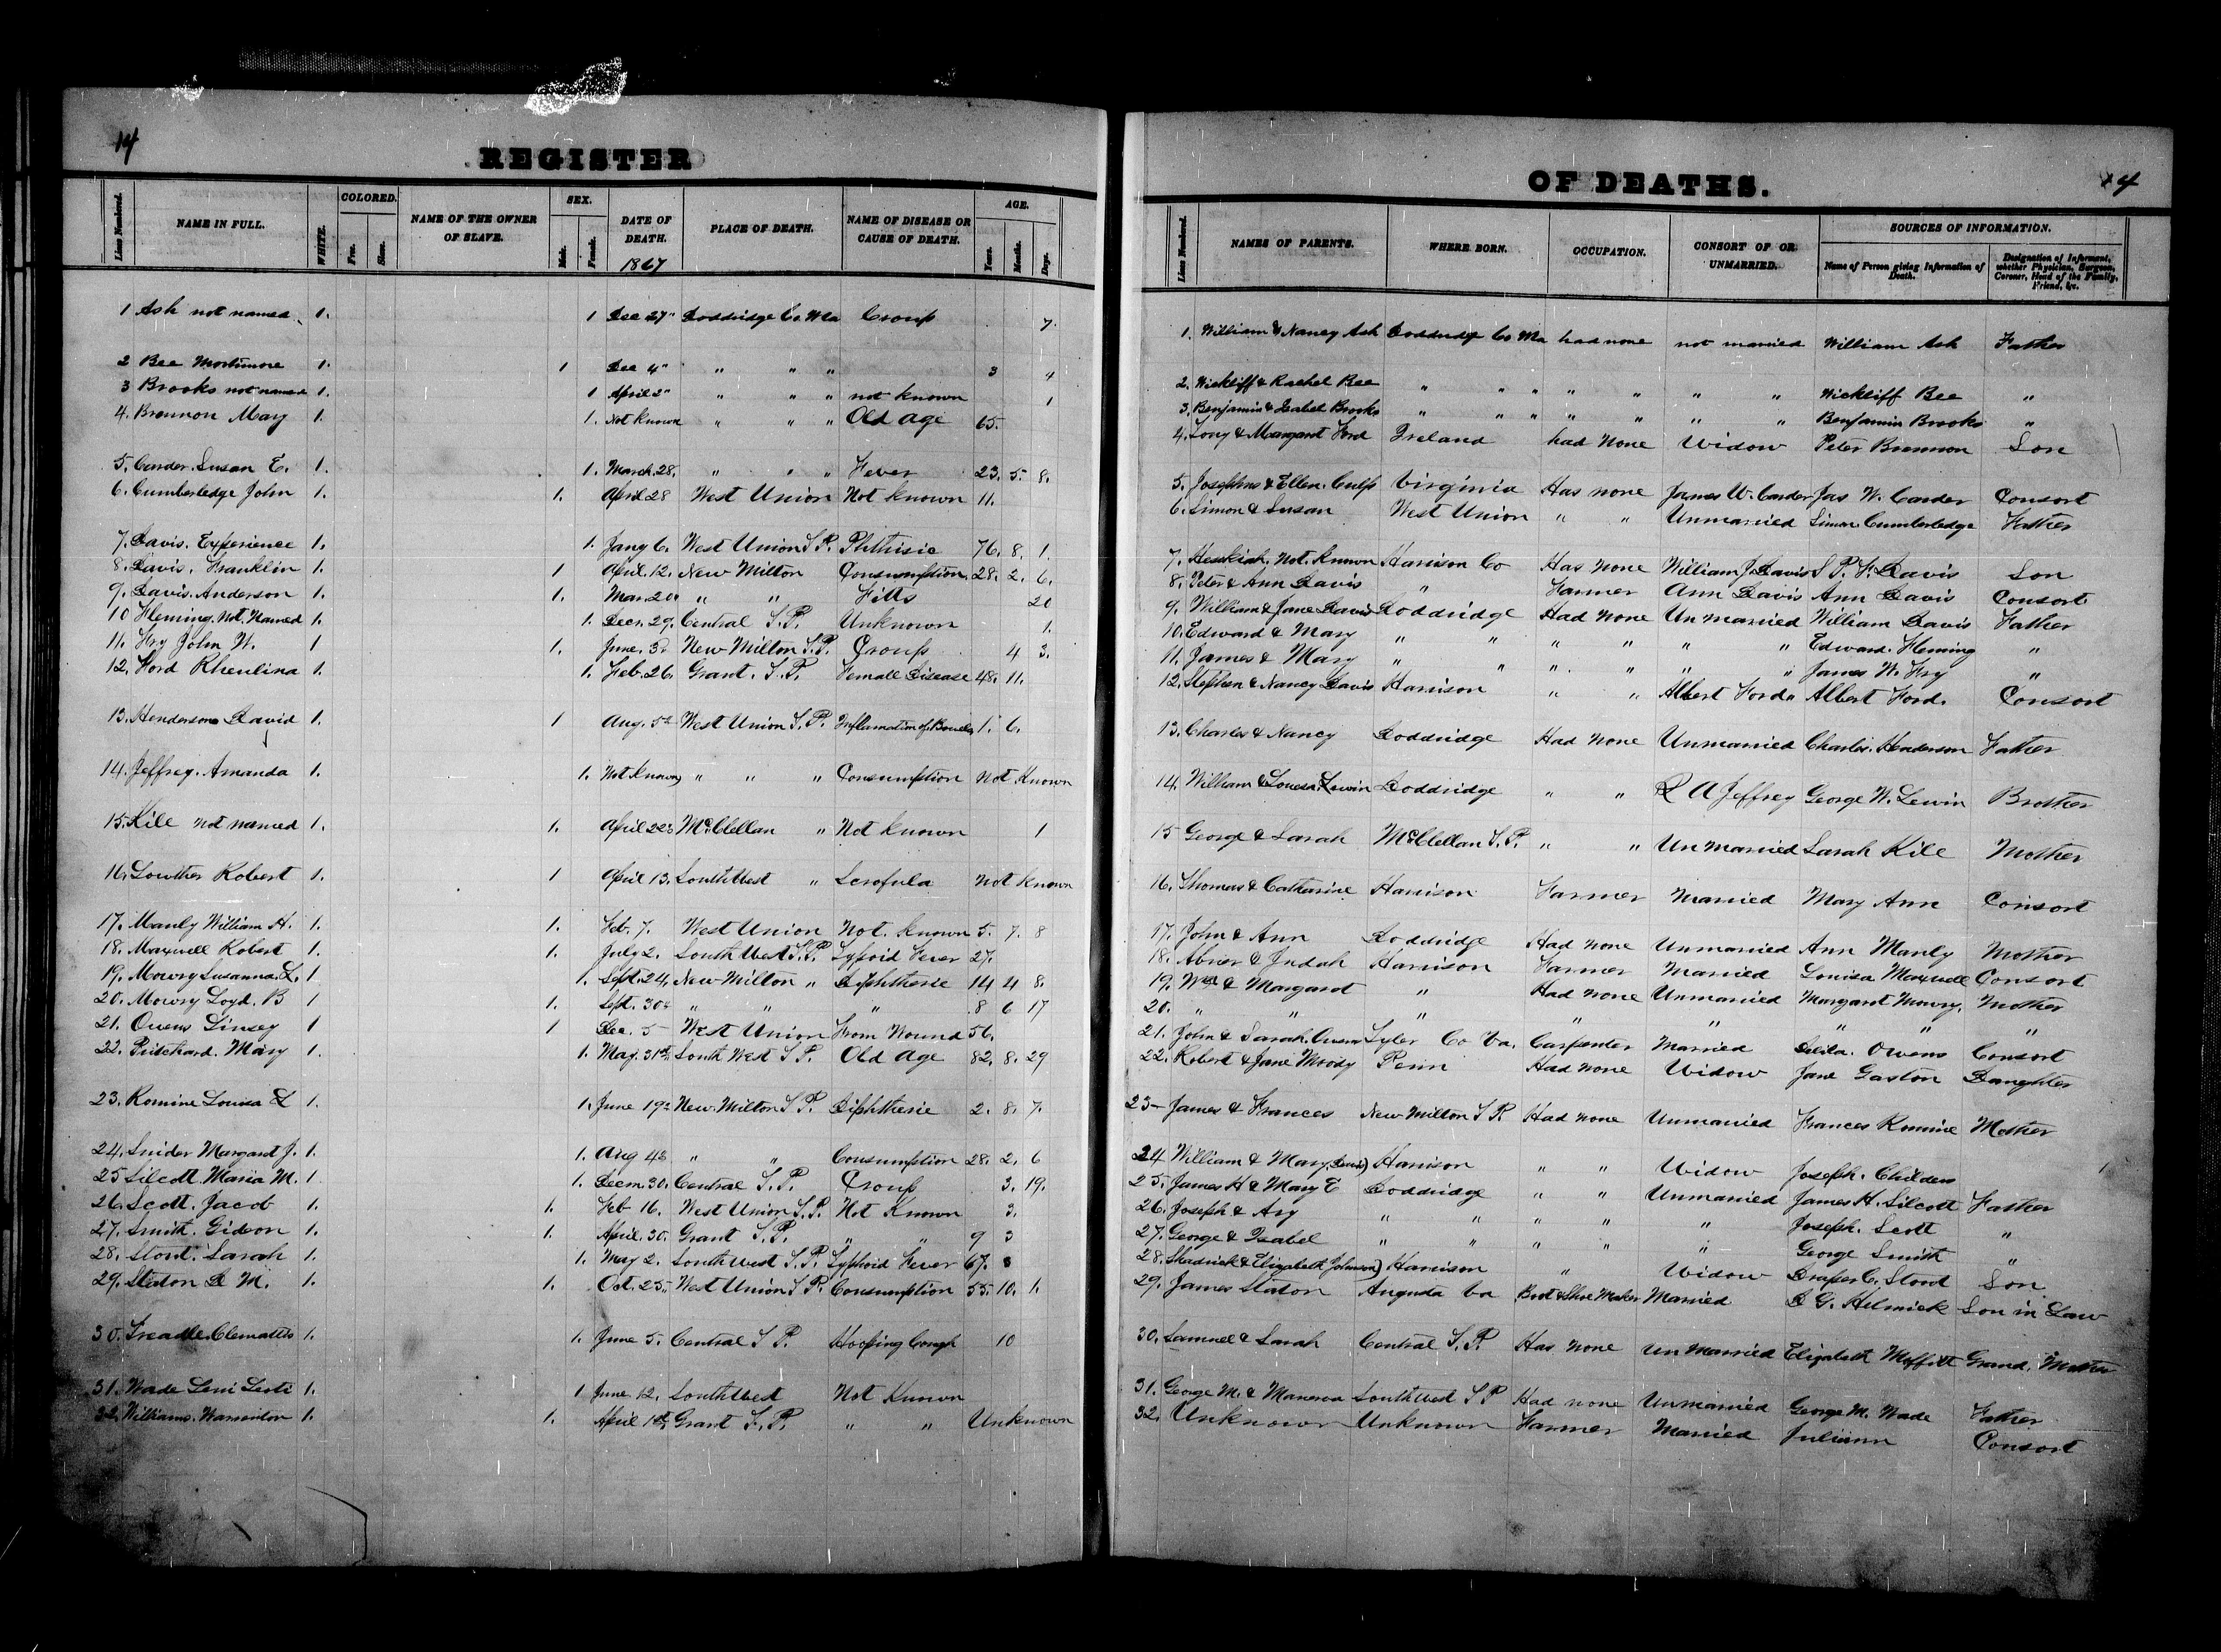 14
REGISTER
Lines Numbered. NAME IN FULL. WHITE. COLORED. Free. Slave. NAME OF THE OWNER OF SLAVE. SEX. Male. Female. DATE OF DEATH. 1867 PLACE OF DEATH. NAME OF DISEASE OR CAUSE OF DEATH. AGE. Years. Months. Days.
1 Ash not named 1. 1 Dec 27" Doddridge Co. W Va Croup 7.
2 Bee Mortimore 1. 1 Dec 4" " " " 3 4
3 Brooks not named 1. 1 April 2" " " " not known 1
4. Brennon Mary 1. 1. Not Known " " " Old age 65.
5. Carder. Susan E. 1. 1. March. 28. " " " Fever 23. 5. 8.
6. Cumberledge John 1. 1. April 28 West Union Not known 11.
7. Davis. Experience 1. 1. Jany 6. West Union T.P. Phthisic 76. 8. 1.
8. Davis. Franklin 1. 1 April. 12. New Milton Consumption 28. 2. 6.
9. Davis. Anderson 1. 1. Mar. 20th " " Fitts 20
10 Fleming. Not. Named 1. 1. Decr. 29. Central T.P. Unknown 1.
11. Fry John W. 1 1. June. 3d New Milton T.P. Croup 4 3.
12. Ford Rheulina 1. 1. Feb. 26. Grant. T.P. Female Disease 48. 11.
13. Henderson David 1. 1 Aug. 5th West Union T.P. Inflamation of Bowells 1. 6.
14. Jeffrey. Amanda 1. 1. Not Known " " " Consumption Not Known
15. Kile not named 1. 1. April 22d McClellan " Not known 1
16. Lowther Robert 1. 1 April 13. South West " Scrofula Not Known
17. Manly William H. 1. 1. Feb. 7. West Union Not. Known 5. 7. 8
18. Maxwell Robert 1. 1. July 2. South West T.P. Typoid Fever 27.
19. Mowry Susanna. L. 1 1. Sept. 24. New Milton " Diphtherie 14 4 8.
20. Mowry Loyd. B 1 1. Sept. 30th " " " 8 6 17
21. Owens Linsey 1 1 Dec. 5 West Union From Wound 56.
22. Pritchard. Mary 1. 1. May. 31st South West T.P. Old Age 82. 8. 29
23. Romine Louisa L 1. 1. June 19th New. Milton T.P. Diphtherie 2. 8. 7.
24. Snider Margaret J. 1. 1. Aug 4th " " Consumption 28. 2. 6
25 Silcott. Maria M. 1 1. Decm. 30. Central T.P. Croup 3. 19.
26. Scott. Jacob 1. 1. Feb 16. West Union T.P. Not Known 3.
27. Smith. Gideon 1. 1. April. 30. Grant T.P. " " 9 3
28. Stout. Sarah 1. 1. May 2. Southwest T.P. Typhoid Fever 67.
29. Staton M. 1. 1. Oct. 25. West Union T.P. Consumption 55. 10. 1.
30. Clematis 1. 1. June 5. Central T.P. Hooping Cough 10
31. Wade 1. 1 June 12. Southwest Not Known
32. Williams. 1. 1. April 1st Grant T.P. " " Unknown
OF DEATHS.
4
Lines Numbered. NAMES OF PARENTS. WHERE BORN. OCCUPATION. CONSORT OF OR UNMARRIED. SOURCES OF INFORMATION. Name of Person giving Information of Death. Designation of Informant, whether Physician, Surgeon, Coroner, Head of the Family, Friend, &c.
1. William & Nancy Ash Doddridge Co W Va had none not married William Ash Father
2. Wickliff & Rachel Bee " " " " " " " Wickliff Bee "
3. Benjamin & Isabel Brooks " " " " " " " Benjamin Brooks "
4. Tony & Margaret Ford Ireland had none Widow Peter Brennon Son
5. Josephus & Ellen. Culp Virginia Has none James W. Carder Jas W. Carder Consort
6. Simon & Susan West Union " " Unmarried Simon Cumberledge Father
7. Hezekiah. Not. Known Harrison Co Has none William J. Davis S. P. F. Davis Son
8. Peter & Ann Davis " Farmer Ann Davis Ann Davis Consort
9. William & Jane Davis Doddridge Had none Unmarried William Davis Father
10. Edward & Mary " " " " " " Edward. Fleming "
11. James & Mary " " " " " " James W. Fry "
12. Stephen & Nancy Davis Harrison " " Albert Ford Albert Ford. Consort
13. Charles & Nancy Doddridge Had none Unmarried Charles. Henderson Father
14. William & Louisa Lewin Doddridge " " R A Jeffrey George W. Lewin Brother
15 George & Sarah McClellan T.P. " " Unmarried Sarah Kile Mother
16. Thomas & Catharine Harrison Farmer Married Mary Ann Consort
17. John & Ann Doddridge Had none Unmarried Ann Manly Mother
18. Abner & Judah Harrison Farmer Married Louisa Maxwell Consort
19. Wm & Margaret " Had none Unmarried Margaret Mowry. Mother
20. " " " " " " "
21. John & Sarah. Owens Tyler Co Va. Carpenter Married Delila. Owens Consort
22. Robert & Jane Moody Penn Had none Widow Jane Gaston Daughter
23 James & Frances New Milton T P. Had none Unmarried Frances Romine Mother
24 William & Mary Harrison " " Widow Joseph. Childers
25. James H & Mary E Doddridge " " Unmarried James H. Silcott Father
26. Joseph & Ary " " " " " Joseph. Scott "
27. George & Isabel " " " " " George Smith "
28. Shadrick & Elizabeth Johnson) Harrison " Widow Draper C. Stout Son
29. James Staton Augusta Va Boot & Shoe Maker Married G. Helmick Son in Law
30. Samuel & Sarah Central T.P. Has none Unmarried Elizabeth Moffitt Grand. Mother
31. George M. & Manerva Southwest T P Had none Unmarried George M. Wade Father
32. Unknown Unknown Farmer Married Juliann Consort